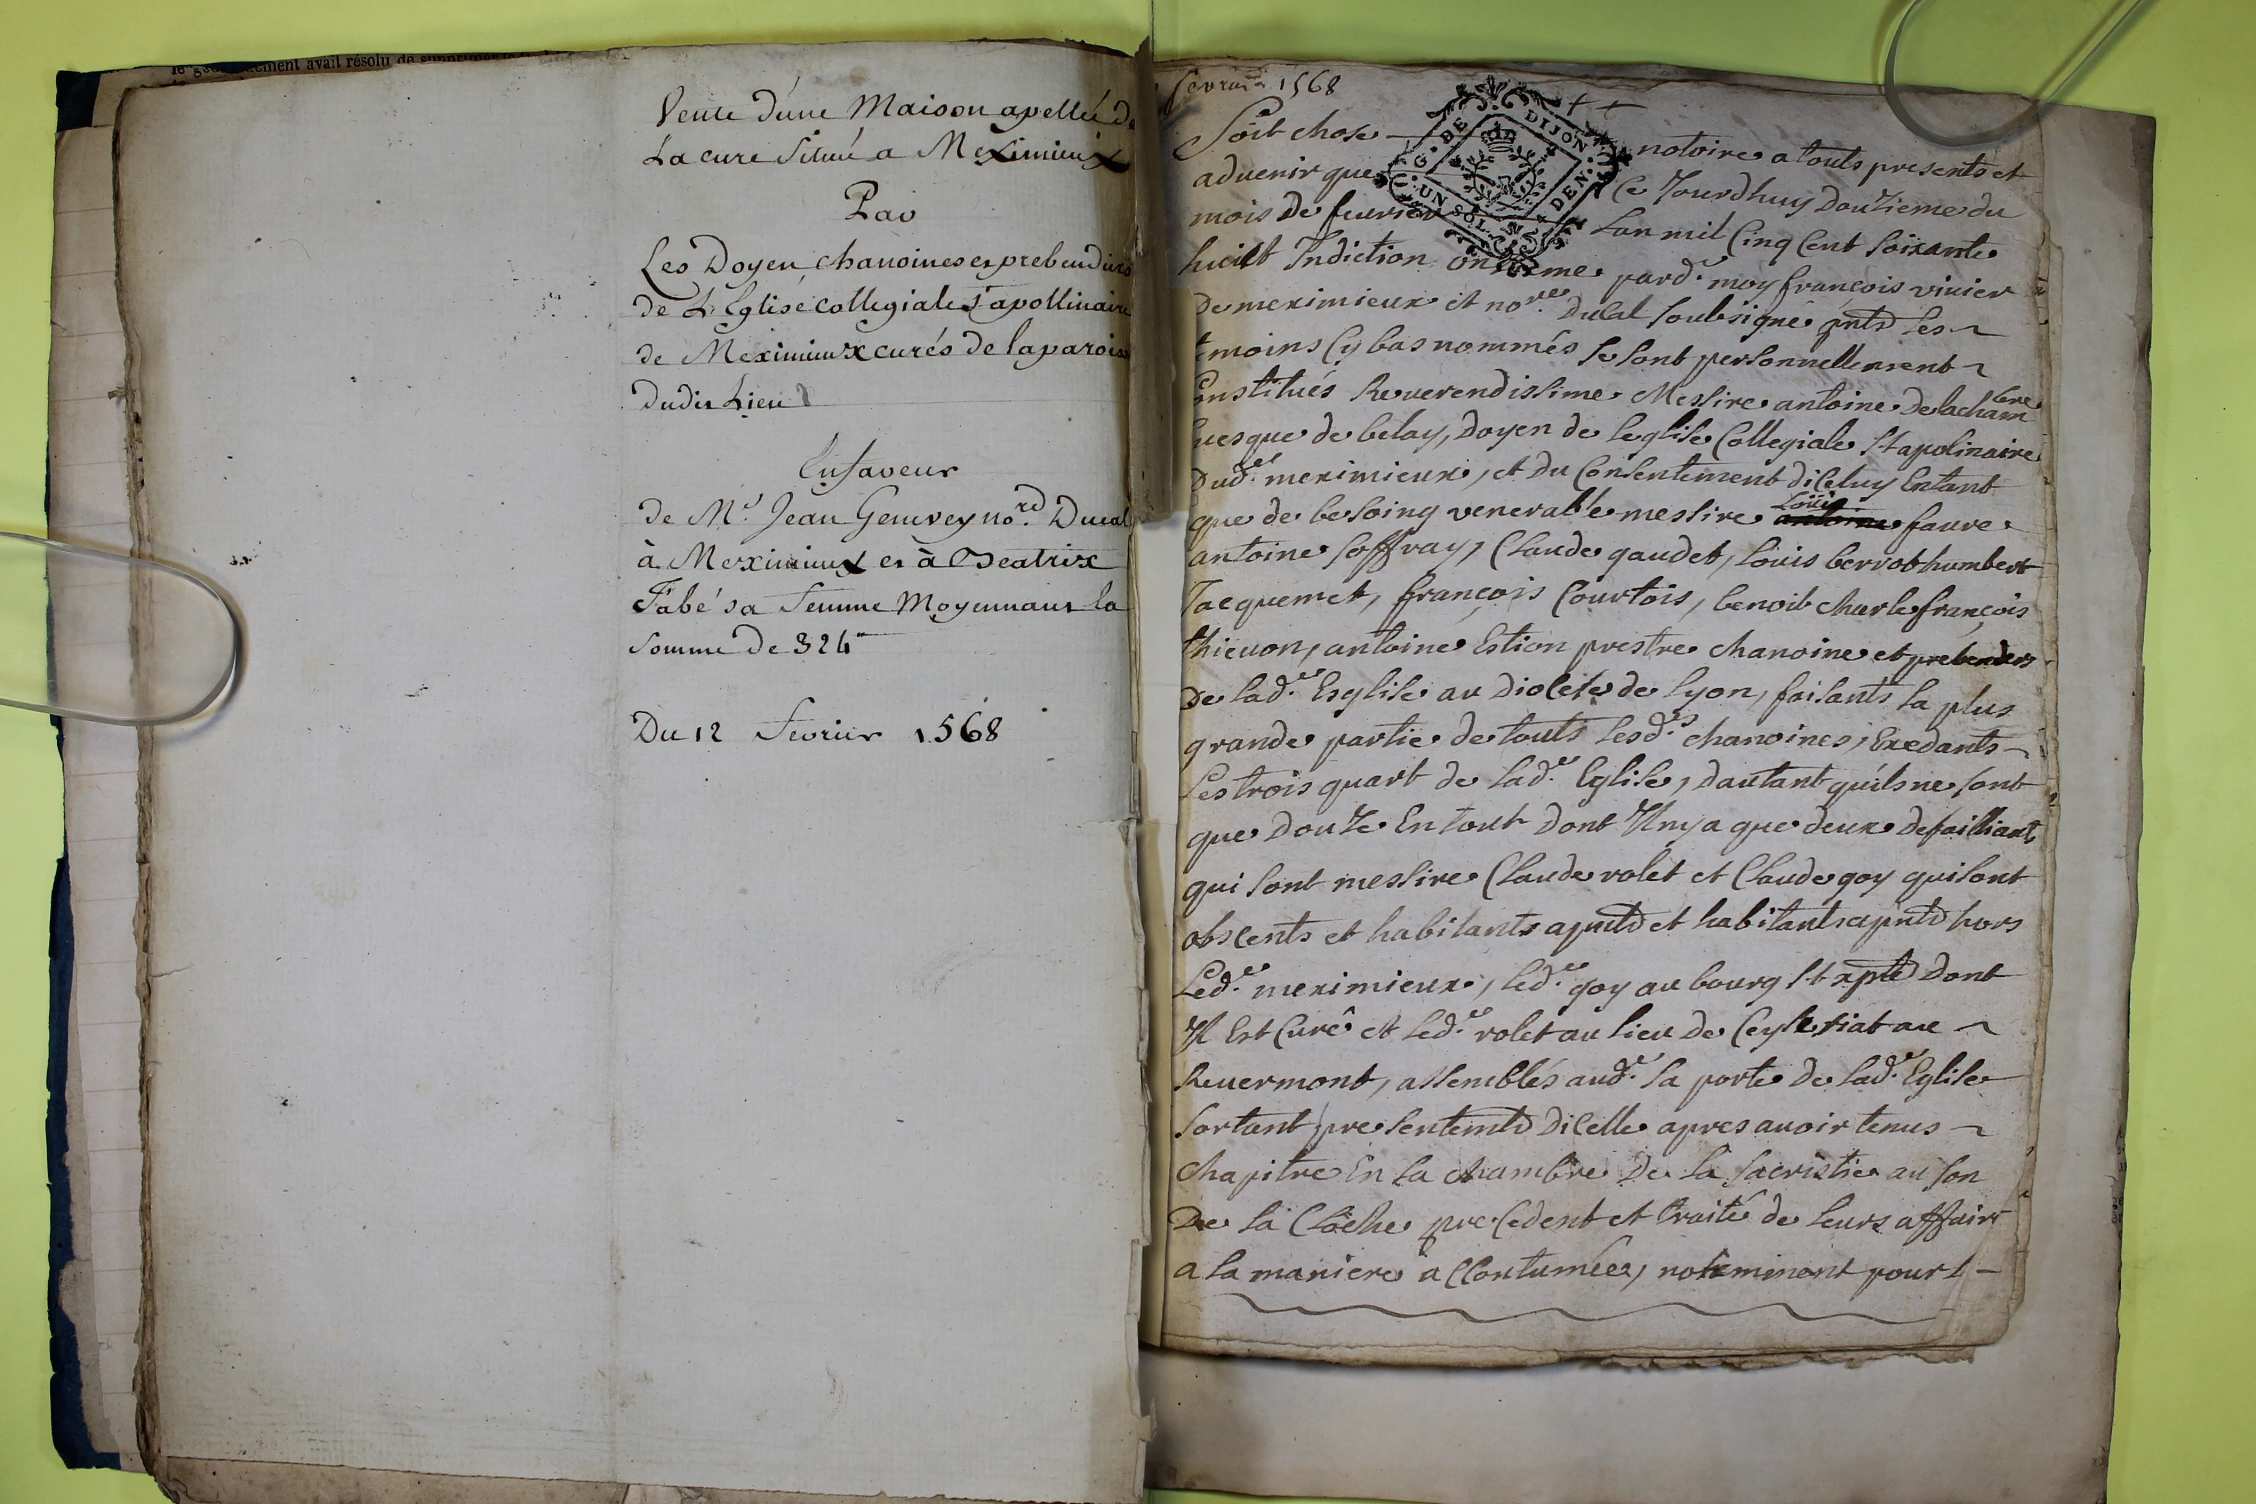 avait résolu de
Vente d'une Maison apellée de
La cure Situé a Meximieux
Par
Les Doyen chanoines et prebendiers
de L'Eglise collegiale St apollinaire
de Meximieux curés de la paroisse
dudit Lieu
En faveur
de Me. Jean Genevey nore. Ducal
à Meximieux et à Beatrix
Fabé sa femme Moyennant la
somme de 324ᵗᵗ
Du 12 Fevrier 1568
fevrier 1568
G. DE DIJON
UN SOL DEN.
Soit chose notoire a touts presents et
advenir que Ce Jourdhuy Douzieme du
mois De fevrier Lan mil Cinq Cent Soixante
huict Indiction onzieme pard.t moy françois vivier
De meximieux et nore. Ducal soubsigné pntd Les
temoins Cy bas nommés se sont personnellement
Constitués Reverendissime Messire antoine Delachambre
Evesque de belay, Doyen de Leglise Collegiale St apolinaire
Dud.t meximieux, et Du Consentement Diceluy Entant
que de besoing venerable messire Loüis faure
antoine Joffray, Claude gaudet, Loüis berrot humbert
Jacquemet, françois Courtois, benoit Charle françois
thievon, antoine Estion prestre chanoine et prebendiers
De lad.e Esglise au Diocése de Lyon, faisants la plus
grande partie de touts Lesd.s chanoines, Exedants
Les trois quart de Lad.e Eglise, Dautant quils ne sont
que Douze En tout Dont Il ny a que deux defailliants
qui sont messire Claude rolet et Claude goy qui sont
obscents et habitants apntd et habitants apntd hors
Led.t meximieux, Led.t goy au bourg St Dont
Il Est Curé et Led.t rolet au lieu De Ceyseriat au
Revermont, assemblés aud.t La porte De Lad.e Eglise
Sortant presentemtd Dicelle apres avoir tenus
Chapitre En La chambre De La Sacristie au son
De La Cloche precedent et traité de Leurs affaires
a la maniere accoutumée, notemment pour L